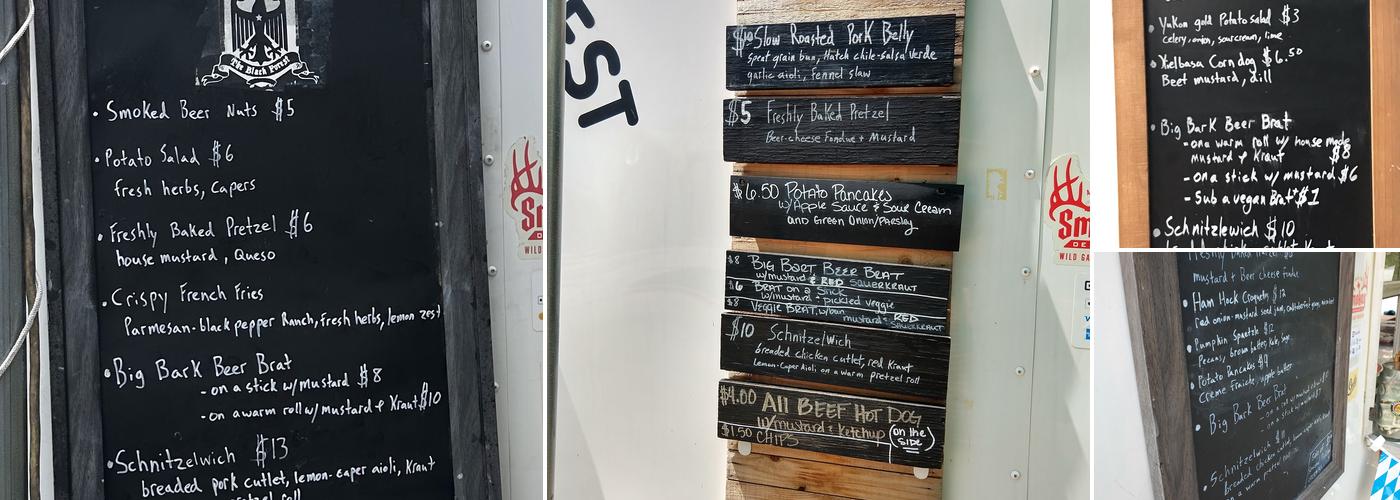 The Black Forest
• Smoked Beer Nuts $5
• Potato Salad $6
fresh herbs, capers
• Freshly Baked Pretzel $6
house mustard, Queso
• Crispy French Fries
Parmesan-black pepper Ranch, fresh herbs, lemon zest
• Big Bark Beer Brat
- on a stick w/Mustard $8
- on a warm roll w/ mustard & Kraut $10
• Schnitzelwich $13
breaded pork cutlet, lemon-caper aioli, Kraut
pretzel roll
EST
$10 Slow Roasted Pork Belly
spent grain bun, Hatch chile-salsa verde
garlic aioli, fennel slaw
$5 Freshly Baked Pretzel
Beer-cheese Fondue + Mustard
$6.50 Potato Pancakes
w/Apple Sauce & Sour Cream
and Green Onion/Parsley
$8 BIG BORT BEER BRAT
w/mustard & RED SAUERKRAUT
$6 BRAT on a Stick
w/mustard + pickled veggie
$8 VEGGIE BRAT, w/bun
mustard + RED
SAUERKRAUT
$10 Schnitzelwich
breaded chicken cutlet, red Kraut
Lemon-Caper Aioli on a warm pretzel roll
$4.00 All BEEF HOT DOG
w/mustard & Ketchup (on the side)
$1.50 CHIPS
Sm
WILD GA
• Yukon gold Potato salad $3
celery, onion, sour cream, lime
• Kielbasa Corn dog $6.50
Beet mustard, dill
• Big Bark Beer Brat
- on a warm roll w/ house made
mustard & Kraut $8
- on a stick w/ mustard $6
- Sub a vegan Brat +$1
• Schnitzelwich $10
Freshly Baked Pretzel
mustard + Beer cheese fondue
• Ham Hock Croquettes $12
red onion-mustard seed jam
• Pumpkin Spaetzle $12
Pecans, brown butter, Kale, Sage
• Potato Pancakes $9
Creme Fraiche, apple butter
• Big Bark Beer Brat
• Schnitzelwich $11
breaded chicken
warm pretzel roll